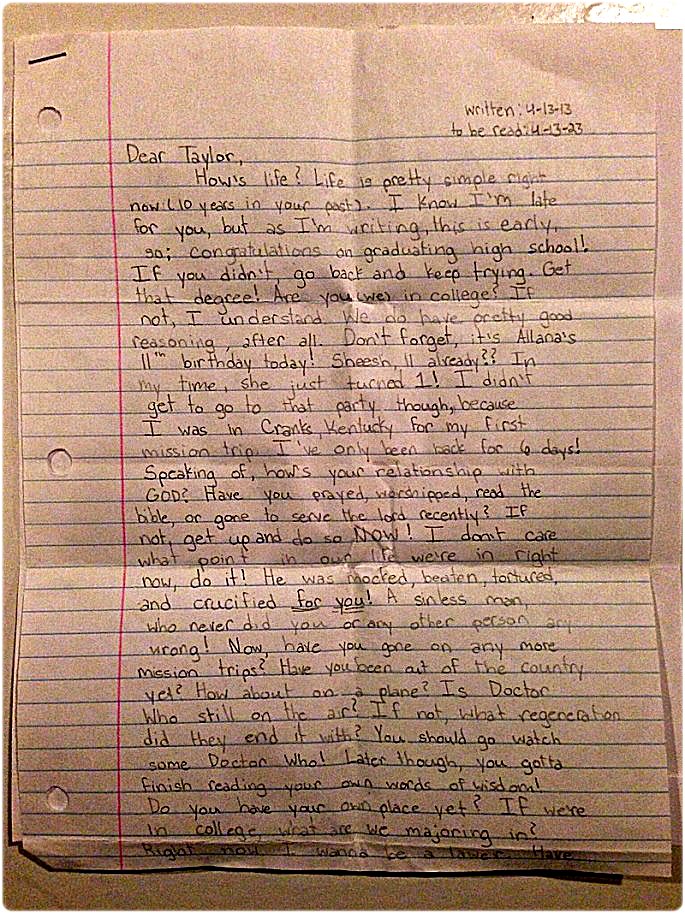 written: 4-13-13
to be read: 4-13-23
Dear Taylor,
How's life? Life is pretty simple right
now (10 years in your past). I know I'm late
for you, but as I'm writing, this is early,
so; congratulations on graduating high school!
If you didn't, go back and keep trying. Get
that degree! Are you (we) in college? If
not, I understand. We do have pretty good
reasoning, after all. Don't forget, it's Allana's
11th birthday today! Sheesh, 11 already?? In
my time, she just turned 1! I didn't
get to go to that party, though, because
I was in Cranks, Kentucky for my first
mission trip. I've only been back for 6 days!
Speaking of, how's your relationship with
GOD? Have you prayed, worshipped, read the
bible, or gone to serve the lord recently? If
not, get up and do so NOW! I don't care
what point in our life we're in right
now, do it! He was mocked, beaten, tortured,
and crucified for you! A sinless man,
who never did you or any other person any
wrong! Now, have you gone on any more
mission trips? Have you been out of the country
yet? How about on a plane? Is Doctor
Who still on the air? If not, what regeneration
did they end it with? You should go watch
some Doctor Who! Later though, you gotta
finish reading your own words of wisdom!
Do you have your own place yet? If we're
in college, what are we majoring in?
Right now I wanna be a lawer. Have